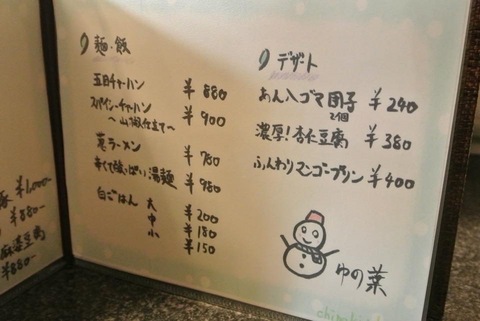 麺・飯
五目チャーハン ¥880
スパイシーチャーハン ¥900
～山椒仕立て～
葱ラーメン ¥780
辛くて酸っぱい湯麺 ¥980
白ごはん 大 ¥200
中 ¥180
小 ¥150
デザート
あん入ゴマ団子 ¥240
2個
濃厚!杏仁豆腐 ¥380
ふんわりマンゴープリン ¥400
ゆの葉
¥1,000-
¥880-
麻婆豆腐
¥880-